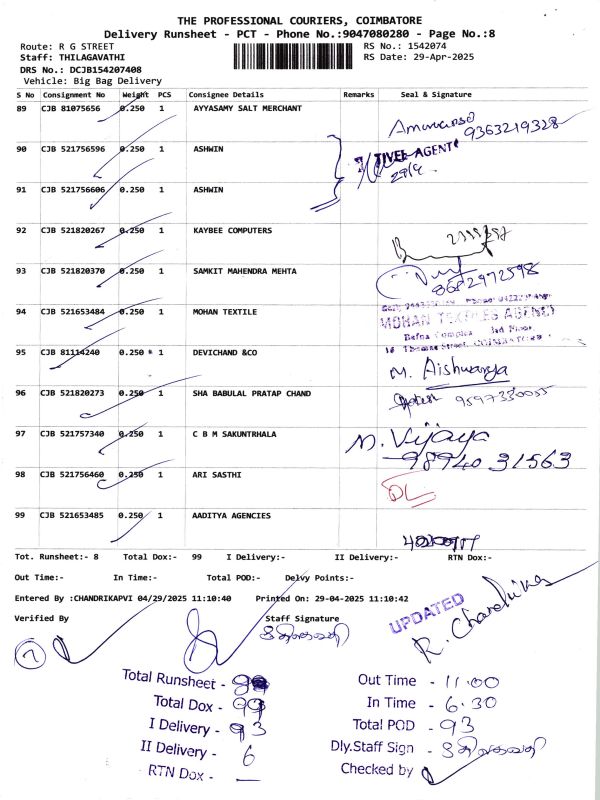 THE PROFESSIONAL COURIERS, COIMBATORE
Delivery Runsheet - PCT - Phone No.:9047080280 - Page No.:8
Route: R G STREET RS No.: 1542074
Staff: THILAGAVATHI RS Date: 29-Apr-2025
DRS No.: DCJB154207408
Vehicle: Big Bag Delivery
S No Consignment No Weight PCS Consignee Details Remarks Seal & Signature
89 CJB 81075656 0.250 1 AYYASAMY SALT MERCHANT
9363219328
90 CJB 521756596 0.250 1 ASHWIN
AGENT
29/4
91 CJB 521756606 0.250 1 ASHWIN
92 CJB 521820267 0.250 1 KAYBEE COMPUTERS
93 CJB 521820370 0.250 1 SAMKIT MAHENDRA MEHTA
8682972598
94 CJB 521653484 0.250 1 MOHAN TEXTILE
MOHAN TEXTILES AGENCY
95 CJB 81114240 0.250 1 DEVICHAND &CO
M. Aishwarya
96 CJB 521820273 0.250 1 SHA BABULAL PRATAP CHAND
97 CJB 521757340 0.250 1 C B M SAKUNTRHALA
M. Vijaya
98940 31563
98 CJB 521756460 0.250 1 ARI SASTHI
DL
99 CJB 521653485 0.250 1 AADITYA AGENCIES
Tot. Runsheet:- 8 Total Dox:- 99 I Delivery:- II Delivery:- RTN Dox:-
Out Time:- In Time:- Total POD:- Delvy Points:-
Entered By :CHANDRIKAPVI 04/29/2025 11:10:40 Printed On: 29-04-2025 11:10:42
Verified By Staff Signature
UPDATED
7
Total Runsheet - Out Time - 11:00
Total Dox - 99 In Time - 6:30
I Delivery - 93 Total POD - 93
II Delivery - 6 Dly.Staff Sign -
RTN Dox - — Checked by